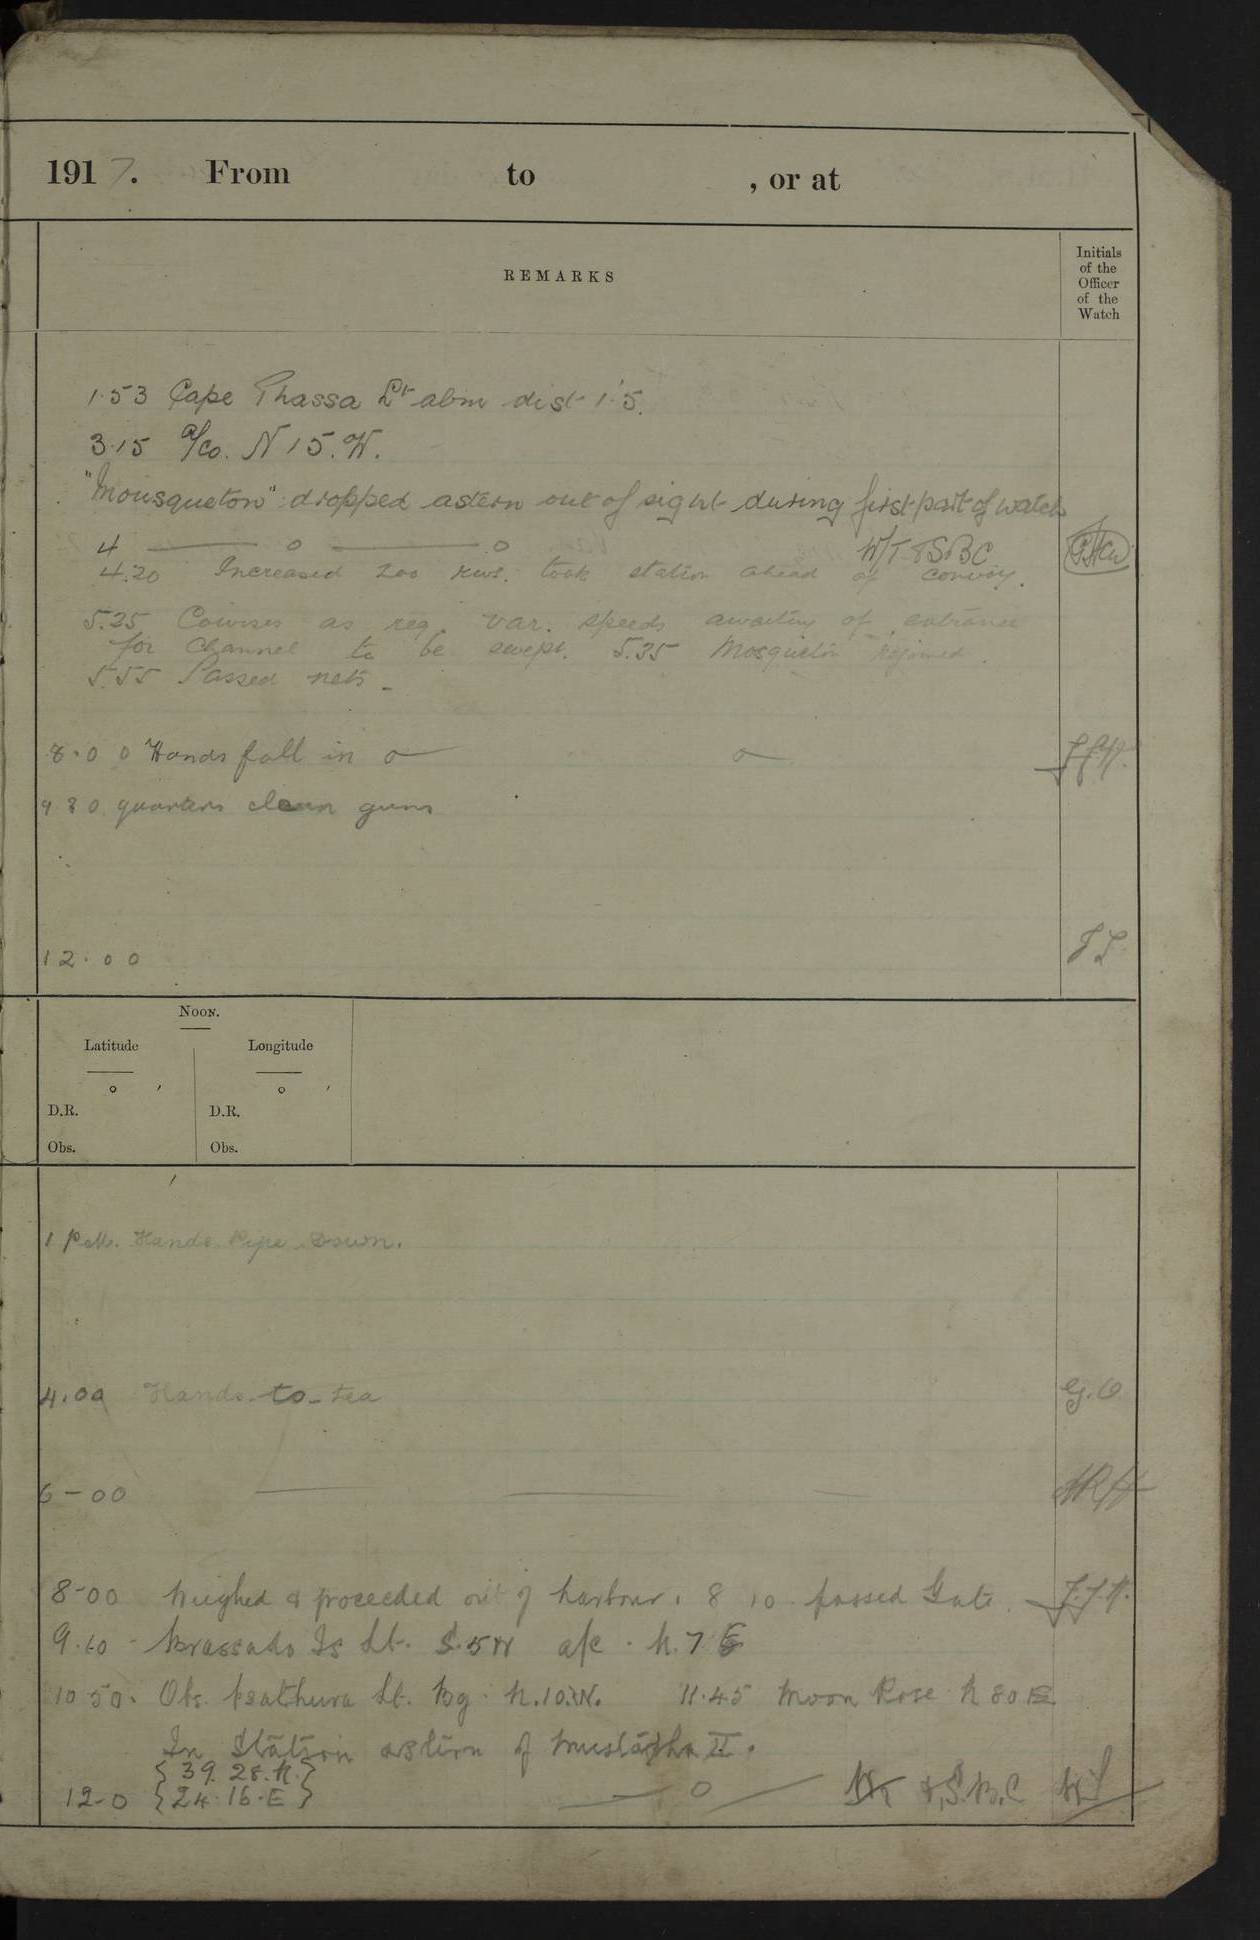 1917. From to , or at
REMARKS
Initials of the Officer of the Watch
1.53 Cape Phassa Lt abm dist 1'.5.
3.15 a/co. N 15. W.
"Mousqueton" dropped astern out of sight during first part of watch
4 — o — o W/T & SBC
4.20 Increased 200 revs. took station ahead of convoy.
5.25 Courses as req. var. speeds awaiting of entrance
for channel to be swept. 5.35 Mosqueton rejoined.
5.55 Passed nets -
8.00 Hands fall in o— o— J.J.H.
9 30 quarters clean guns
12.00
Noon.
Latitude Longitude
° ′ ° ′
D.R. D.R.
Obs. Obs.
1 P.M. Hands Pipe Down.
4.00 Hands-to-tea G.O.
6-00 — — — ARH
8-00 Weighed & proceeded out of harbour. 8 10 passed Gate. J.J.H.
9.10 - Is Lt. S.5W a/c. N.7 E
10 50. Obs. Lt. Bg. N.10.W. 11.45 Moon Rose N 80 E
In Station astern of Mustapha II.
{39. 28. N.}
12-0 {24. 16. E} — o — & S.B.C